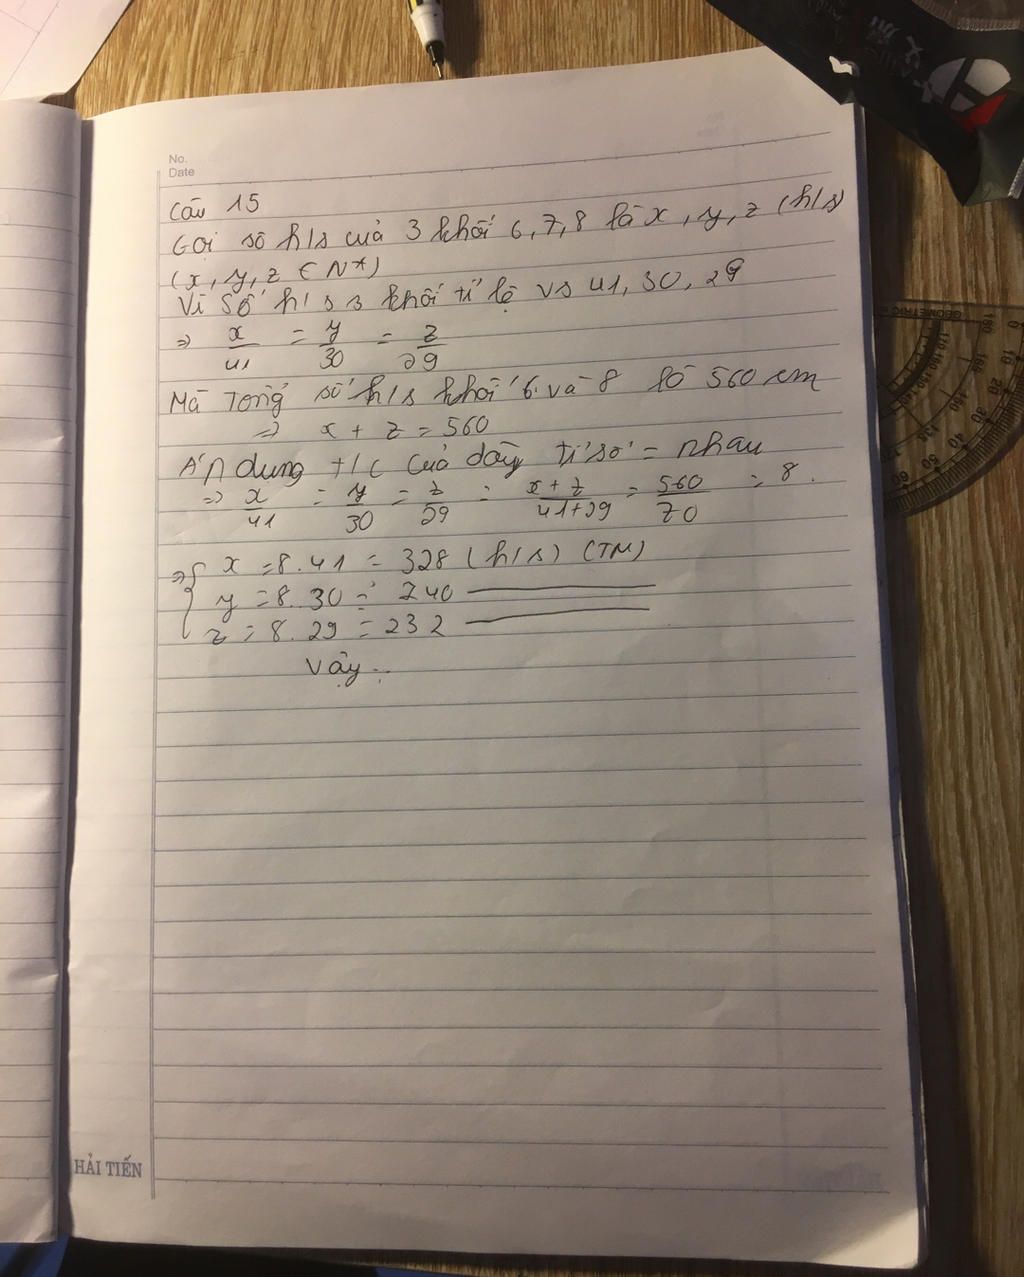 No.
Date
Câu 15
Gọi số h/s của 3 khối 6, 7, 8 là x, y, z (h/s)
(x, y, z ∈ N*)
Vì số h/s 3 khối tỉ lệ vs 41, 30, 29
=> x/41 = y/30 = z/29
Mà Tổng số h/s khối 6 và 8 là 560 em
=> x + z = 560
Áp dụng t/c của dãy tỉ số = nhau
=> x/41 = y/30 = z/29 = x+z/41+29 = 560/70 = 8.
=> { x = 8.41 = 328 (h/s) (TM)
y = 8.30 = 240 ———
z = 8.29 = 232 ———
Vậy..
HẢI TIẾN
GEOMETRIC